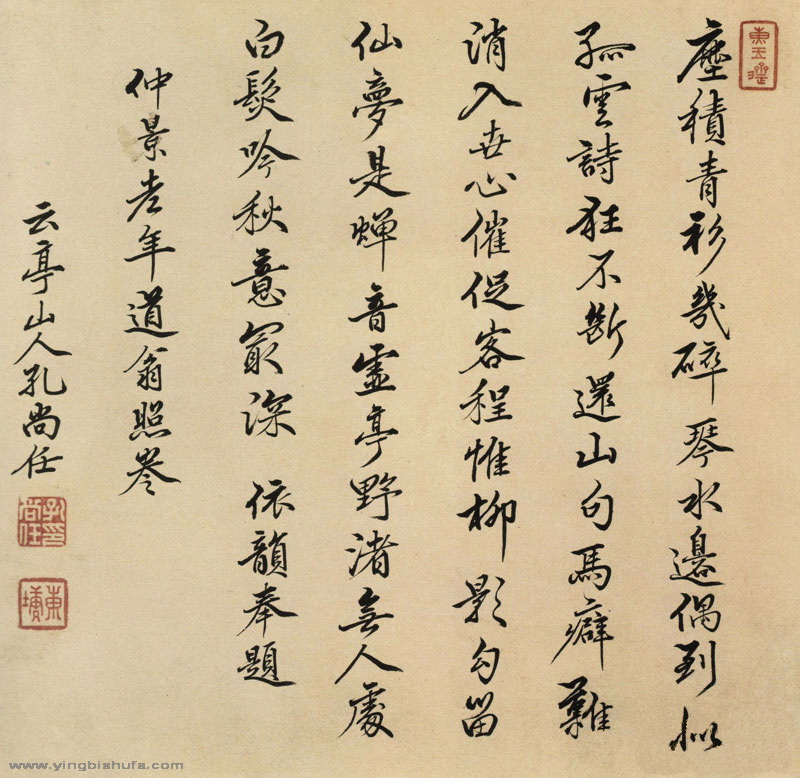 塵積青衫幾碎琴水邊偶到似
孤雲詩狂不斷還山句馬癖難
消入世心催促客程惟柳影勾留
仙夢是蟬音虛亭野渚無人處
白髮吟秋意最深 依韻奉題
仲景老年道翁照 岸堂
云亭山人孔尚任
孔尚任印
東塘
www.yingbishufa.com